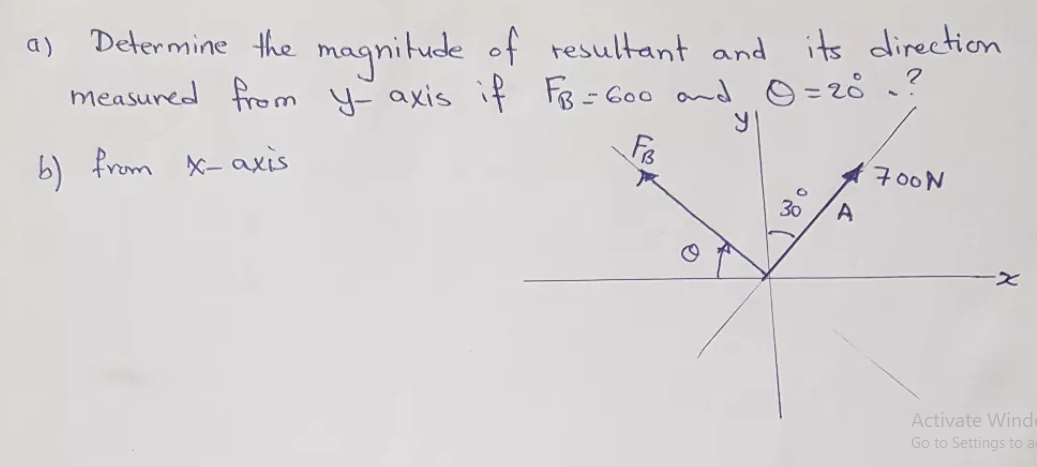 a) Determine the magnitude of resultant and its direction
measured from y-axis if FB = 600 and θ = 20° . ?
b) from x-axis
y
FB
700N
30°
A
θ
x
Activate Wind
Go to Settings to a